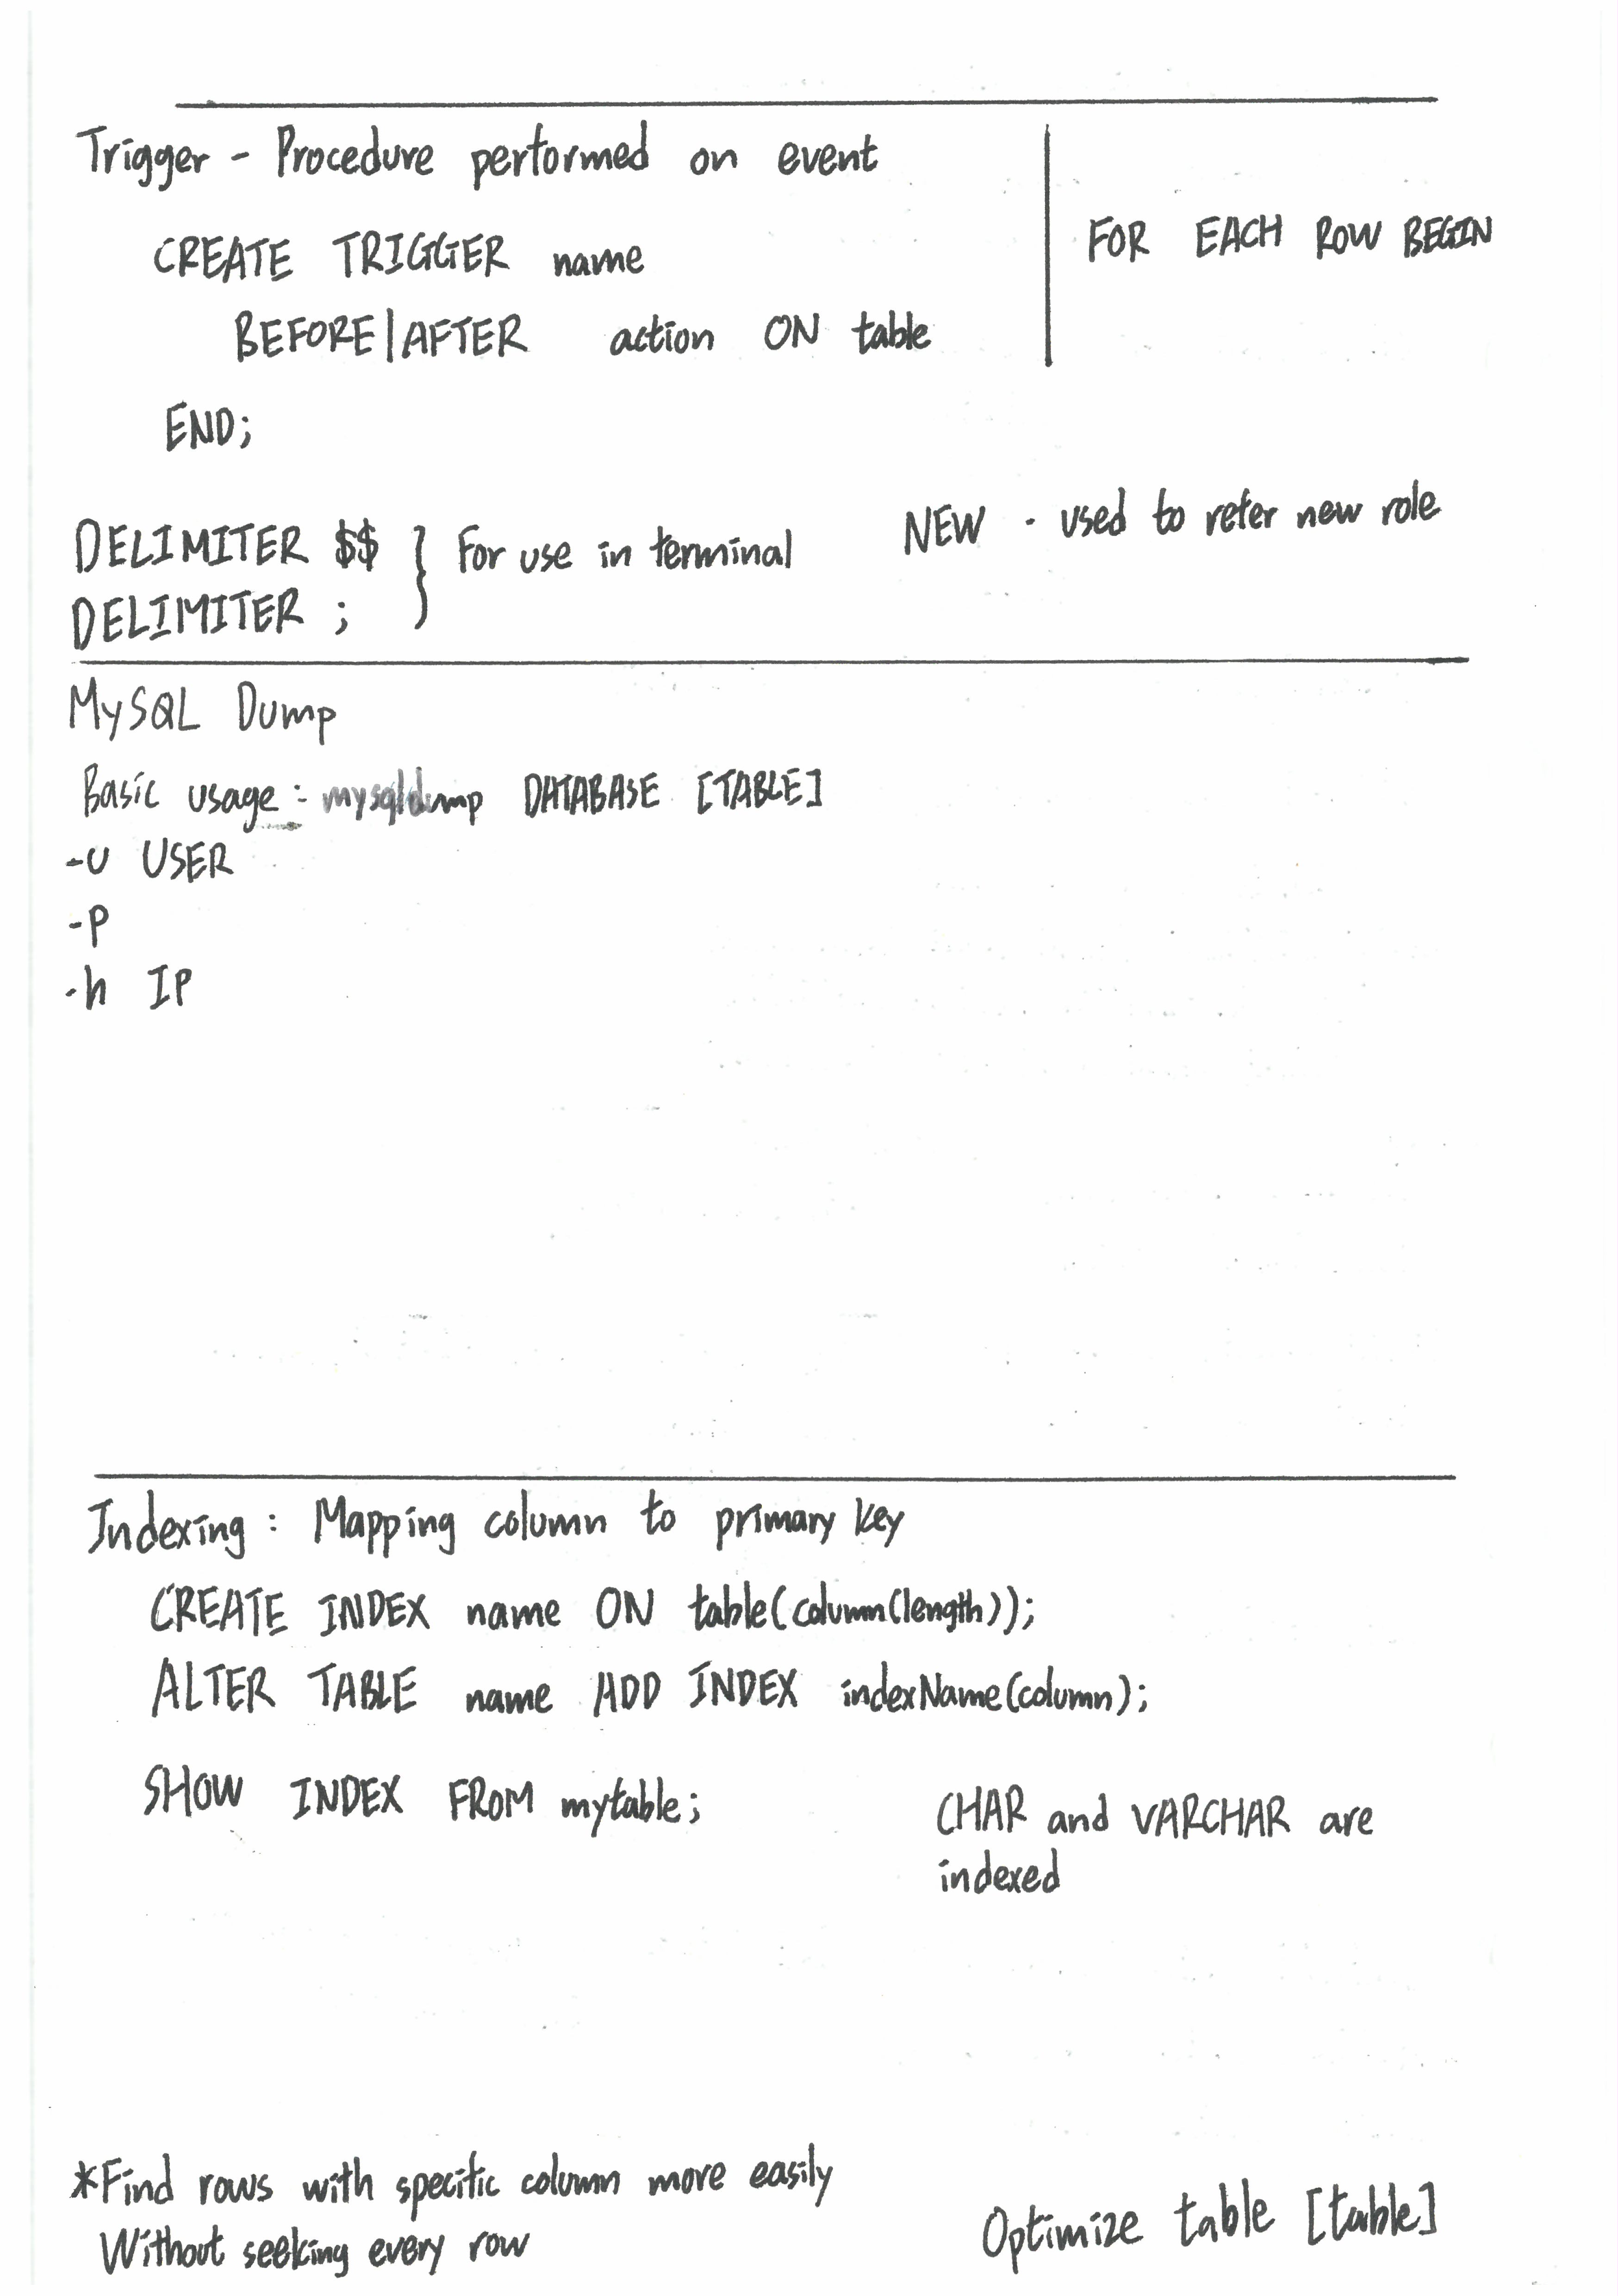 Trigger - Procedure performed on event
CREATE TRIGGER name
BEFORE|AFTER action ON table
FOR EACH ROW BEGIN
END;
DELIMITER $$
DELIMITER ;
For use in terminal
NEW - used to refer new role
MySQL Dump
Basic usage: mysqldump DATABASE [TABLE]
-u USER
-p
-h IP
Indexing: Mapping column to primary key
CREATE INDEX name ON table(column(length));
ALTER TABLE name ADD INDEX indexName(column);
SHOW INDEX FROM mytable;
CHAR and VARCHAR are
indexed
*Find rows with specific column more easily
Without seeking every row
Optimize table [table]